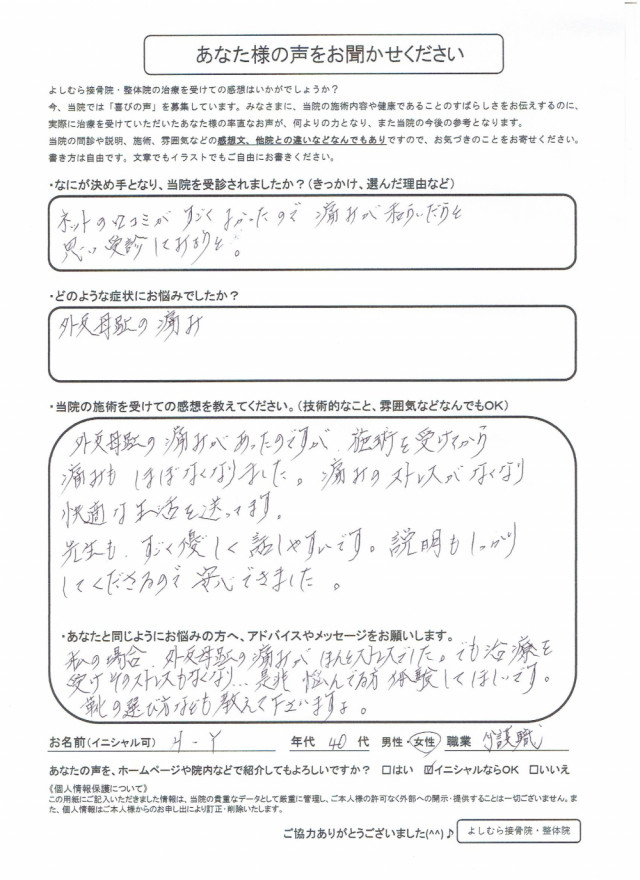 あなた様の声をお聞かせください
よしむら接骨院・整体院の治療を受けての感想はいかがでしょうか？
今、当院では「喜びの声」を募集しています。みなさまに、当院の施術内容や健康であることのすばらしさをお伝えするのに、
実際に治療を受けていただいたあなた様の率直なお声が、何よりの力となり、また当院の今後の参考となります。
当院の問診や説明、施術、雰囲気などの感想文、他院との違いなどなんでもありですので、お気づきのことをお寄せください。
書き方は自由です。文章でもイラストでもご自由にお書きください。
・なにが決め手となり、当院を受診されましたか？(きっかけ、選んだ理由など)
ネットの口コミがすごくよかったので 痛みが
思い 受診しております。
・どのような症状にお悩みでしたか？
外反母趾の痛み
・当院の施術を受けての感想を教えてください。(技術的なこと、雰囲気などなんでもOK)
外反母趾の痛みがあったのですが、施術を受けてから
痛みも ほぼなくなりました。痛みのストレスがなくなり
快適な生活を送ってます。
先生も、すごく優しく話しやすいです。説明もしっかり
してくださるので安心できました。
・あなたと同じようにお悩みの方へ、アドバイスやメッセージをお願いします。
私の場合、外反母趾の痛みがほんとストレスでした。でも治療を
受けそのストレスもなくなり… 是非 悩んでる方 体験してほしいです。
靴の選び方なども教えてくださいますよ。
お名前(イニシャル可) H・Y 年代 40 代 男性・女性 職業 介護職
あなたの声を、ホームページや院内などで紹介してもよろしいですか？ □はい ☑イニシャルならOK □いいえ
《個人情報保護について》
この用紙にご記入いただきました情報は、当院の貴重なデータとして厳重に管理し、ご本人様の許可なく外部への開示・提供することは一切ございません。ま
た、個人情報はご本人様からのお申し出により訂正・削除いたします。
ご協力ありがとうございました(^^)♪ よしむら接骨院・整体院